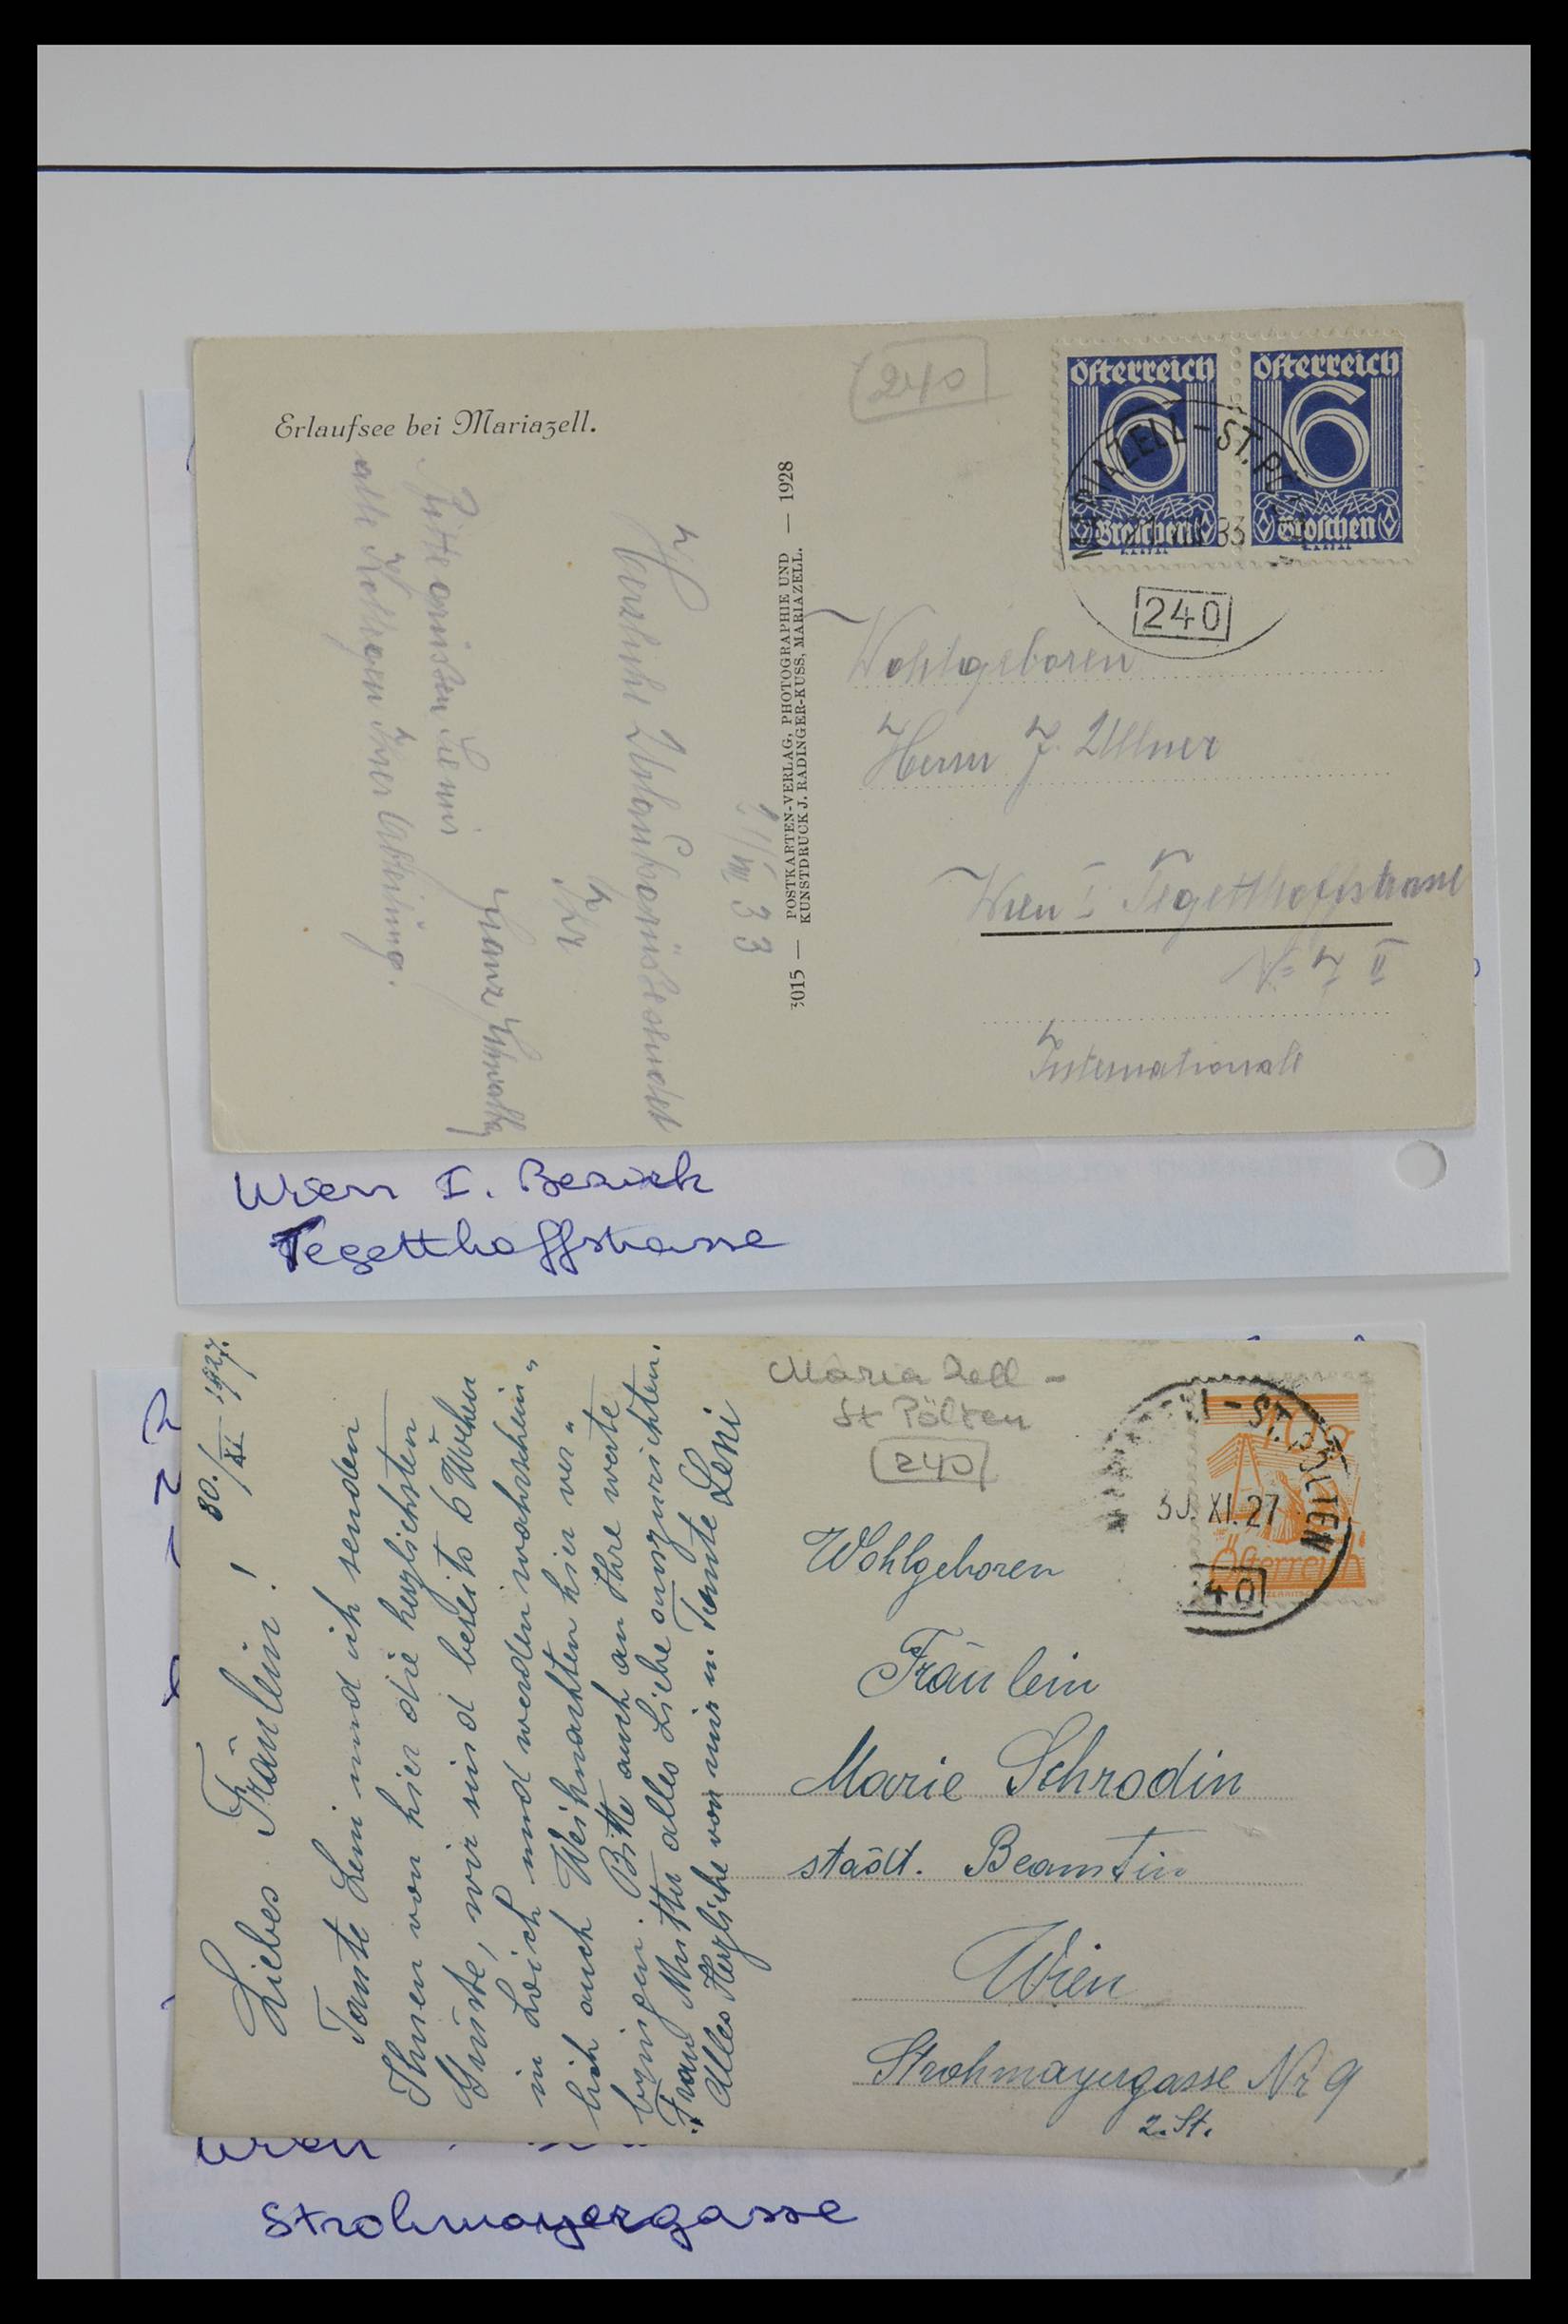 240
Österreich
Österreich
6
6
Groschen
Groschen
MARIAZELL - ST. PÖ
33
240
Erlaufsee bei Mariazell.
Wohlgeboren
Herrn J. Ullner
Wien I. Tegetthoffstrasse
No 7 II
Internationale
3015 — POSTKARTEN-VERLAG, PHOTOGRAPHIE UND — 1928
KUNSTDRUCK J. RADINGER-KUSS, MARIAZELL.
VIII 33
Herzliche Urlaubsgrüsse sendet
Ihr
Franz
Bitte grüssen Sie mir
alle Kollegen Ihrer Abteilung.
Wien I. Bezirk
Tegetthoffstrasse
Maria Zell -
St Pölten
240
- ST. PÖLTEN
30. XI. 27
Österreich
40
30./XI 1927.
Liebes Fräulein!
Tante Leni und ich senden
Ihnen von hier die herzlichsten
Grüsse, wir sind bereits 6 Wochen
in und werden wahrschein„
lich auch Weihnachten hier ver„
bringen. Bitte auch an Ihre werte
Frau Mutter alles Liebe auszurichten.
Alles Herzliche von mir u. Tante Leni
Wohlgeboren
Fräulein
Marie Schrodin
städt. Beamtin
Wien
Strohmayergasse Nr 9
2. St.
Wien
Strohmayergasse